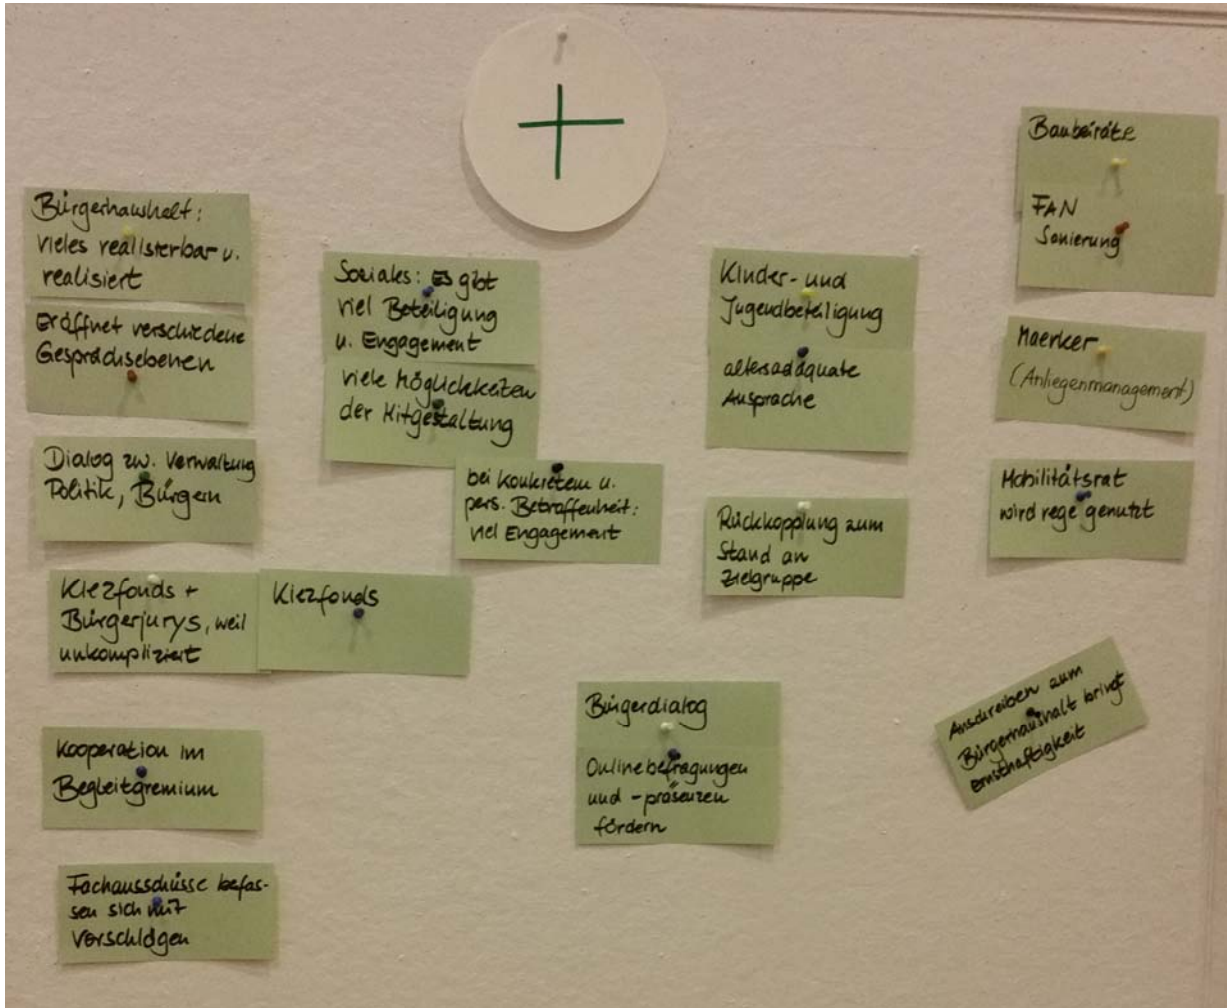 Bürgerhaushalt:
vieles realisierbar u.
realisiert
Eröffnet verschiedene
Gesprächsebenen
Dialog zw. Verwaltung
Politik, Bürgern
Kiezfonds +
Bürgerjurys, weil
unkompliziert
Kiezfonds
Kooperation im
Begleitgremium
Fachausschüsse befas-
sen sich mit
Vorschlägen
Soziales: Es gibt
viel Beteiligung
u. Engagement
viele Möglichkeiten
der Mitgestaltung
bei konkretem u.
pers. Betroffenheit:
viel Engagement
Bürgerdialog
Onlinebefragungen
und -präsenzen
fördern
Kinder- und
Jugendbeteiligung
altersadäquate
Ansprache
Rückkopplung zum
Stand an
Zielgruppe
Baubeiräte
FAN
Sanierung
Maerker
(Anliegenmanagement)
Mobilitätsrat
wird rege genutzt
Anschreiben zum
Bürgerhaushalt bringt
Ernsthaftigkeit